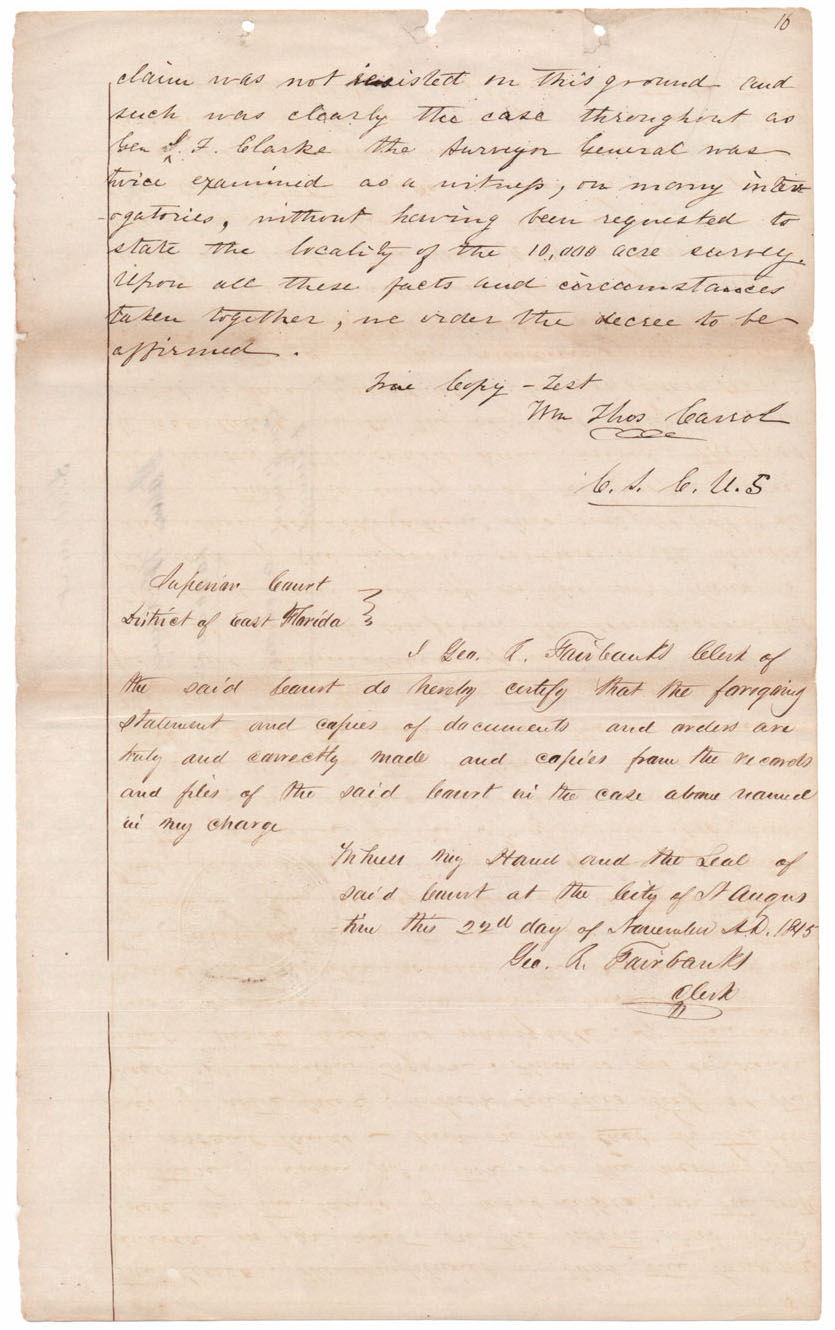 16
claim was not resisted on this ground and
such was clearly the case throughout as
Geo J. F. Clarke the Surveyor General was
twice examined as a witness, on many inter
-ogatories, without having been requested to
state the locality of the 10,000 acre survey.
Upon all these facts and circumstances
taken together, we order the decree to be
affirmed.
True Copy - Test
Wm Thos Carrol
C. S. C. U. S
Superior Court
District of East Florida
I Geo. R. Fairbanks Clerk of
the said Court do hereby certify that the foregoing
statement and copies of documents and orders are
truly and correctly made and copies from the records
and files of the said Court in the case above named
in my charge
Witness my Hand and the Seal of
said Court at the City of St Augus
tine this 22d day of November A.D. 1845
Geo. R. Fairbanks
Clerk